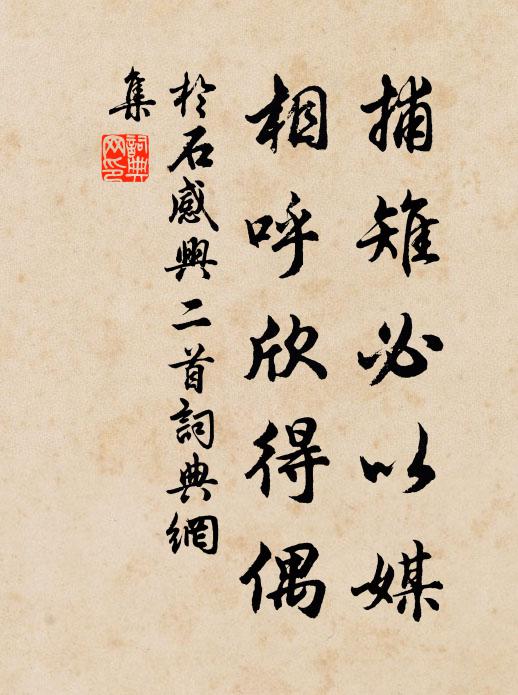 捕雉必以媒
相呼欣得偶
於石感興二首詞典網
集
詞典網印